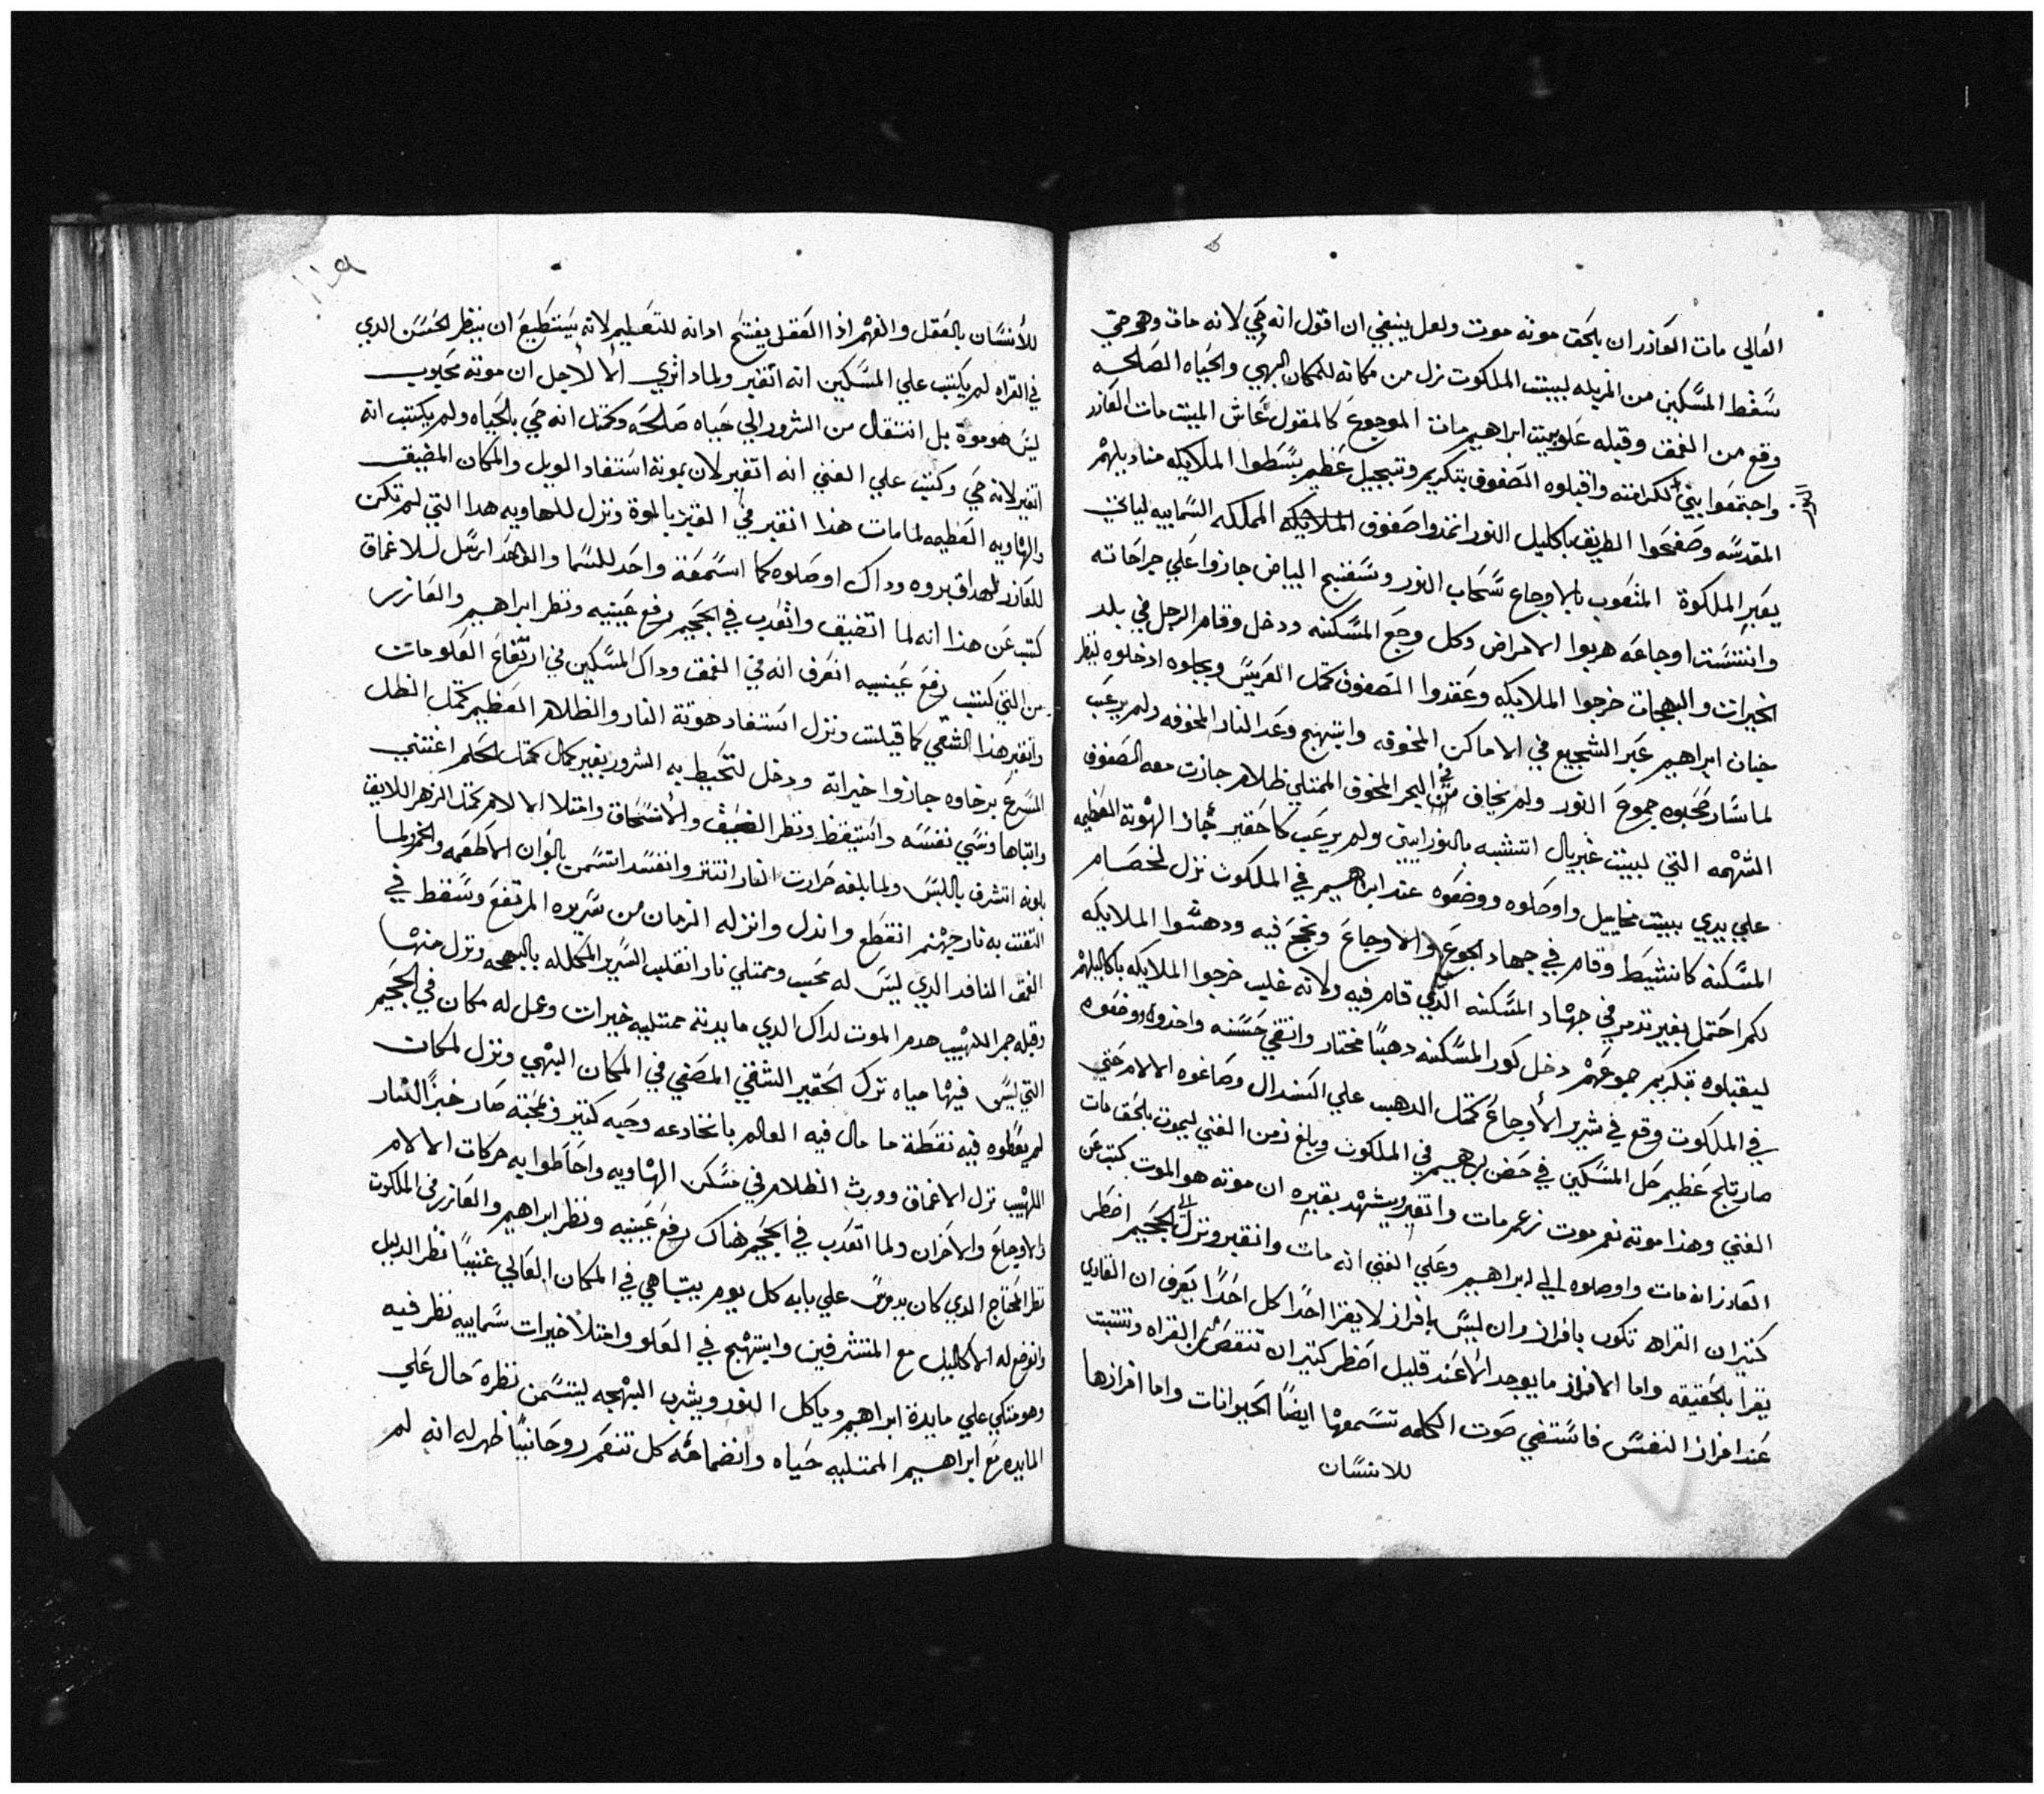 العالي مات العازر ان بالحق موته موت ولعل ينبغي ان اقول انه حي لانه مات وهو حي
سقط المسكين من المزبله لبيت الملكوت نزل من مكانه للمكان البهي والحياه الصالحه
وقع من الغمق وقبله علو بيت ابراهيم مات الموجوع كالمقول عاش الميت مات العازر
واجتمعوا بني النور لكرامته واقبلوه الصفوف بتكريم وتبجيل عظيم بسطوا الملايكه مناديلهم
المقدسه وصفحوا الطريق باكليل النور انمدوا صفوف الملايكه المملكه السماييه لياتي
يعبر الملكوة المتعوب بالاوجاع سحاب النور وسفنج البياض جازوا علي جراحاته
وانتست اوجاعه هربوا الامراض وكل وجع المسكنه ودخل وقام الرجل في بلد
الخيرات والبهجات خرجوا الملايكه وعقدوا الصفوف كمثل العريس وجابوه ادخلوه لينظر
خيان ابراهيم عبر الشجيع في الاماكن المخوفه وابتهج وعد النار المخوفه ولم يرعب
لما سار صحبوه جموع النور ولم يخاف من البحر المخوف الممتلي ظلام جازت معه الصفوف
الشهمه التي لبيت غبريال اتشبه بالنورانيين ولم يرعب كا حقير جاز الهوتة العظيمه
علي يدي بيت مخاييل واوصلوه ووضعوه عند ابراهيم في الملكوت نزل لخصام
المسكنه كانشيط وقام في جهاد الجوع والاوجاع ونجح فيه ودهشوا الملايكه
لكم احتمل بغير تدمر في جهاد المسكنه الذي قام فيه ولانه غلب خرجوا الملايكه باكاليلهم
ليقبلوه بتكريم جموعهم دخل كور المسكنه دهبًا مختار وانتقي حسنه واخذوه ووضعوه
في الملكوت وقع في شرير الأوجاع كمثل الدهب علي السندال وصاغوه الالام حتي
صار تاج عظيم حل المسكين في حضن ابرهيم في الملكوت وبلغ زمن الغني ليموت بالحق مات
الغني وهذا موته نعم موت زعم مات واتقبر ويشهد بقبره ان موته هو الموت كتب عن
العازر انه مات واوصلوه الي ابراهيم وعلي الغني انه مات وانقبر ونزل الي الجحيم اخطر
كتير ان القراه تكون بافراز وان ليس بافراز لا يقرا احدًا كل احدًا يعرف ان القاري
يقرا بالحقيقه واما الافراز ما يوجد الا عند قليل اخطر كتير ان تنقص من القراه وتتثبت
عند افراز النفس فاستقي صوت الكلمه تسمعها ايضًا الحيوانات واما افرازها
للانسان
للأنسان بالعقل والفهم اذا العقل يفتح ادانه للتعليم لانه يستطيع ان ينظر الحسن الدي
في القراه لم يكتب علي المسكين انه اتقبر ولماد اتري الا لاجل ان موته محبوب
ليس هو موة بل انتقال من الشرور الي حياه صالحه وكمثل انه حي بالحياه ولم يكتب انه
اتقبر لانه حي وكتب علي الغني انه اتقبر لان بموته استفاد الويل والمكان المضيق
والهاويه العظيمه لما مات هذا انقبر في القبر بالموة ونزل للهاويه هدا التي لم تكن
للعازر لهدا قبروه وداك اوصلوه كما اسمعت واحد للسما والواحد ارسل للاغماق
كتب عن هذا انه لما اتضيق واتعدب في الجحيم رفع عينيه ونظر ابراهيم والعازر
من التي كتب رفع عينيه انعرف انه في الغمق وداك المسكين في ارتفاع العلومات
وانقبر هذا الشقي كما قيلت ونزل استفاد هوتة النار والظلام العظيم كمثل الظل
المسرع برخاوه جازوا خيراته ودخل لتحيط به الشرور بغير كمال كمثل الحلم اغتني
واتباها ونسي نفسه واستيقظ ونظر الضيق والأنسحاق وامتلا الالام كمثل الزهر اللايق
بلونه اتشرف باللبس ولما بلغه حرارت النار انتتر وانفسد اتسمن بالوان الاطعمه والخمر لما
التفت به نار جهنم انقطع واندل وانزله الزمان من سريره المرتفع وسقط في
الغمق النافد الدي ليس له محب وممتلي نار انقلب السرير المكلله بالبهجه ونزل منها
وقبله جمر اللهيب هدم الموت لداك الدي مايدته ممتليه خيرات وعمل له مكان في الجحيم
التي ليس فيها مياه ترك الحقير الشقي المضي في المكان البهي ونزل لمكان
لم يعطوه فيه نقطة ما مال فيه العالم باتخادعه وحيه كتير ونجته صار خبزًا للنار
اللهيب نزل الاغماق وورث الظلام في مسكن الهاويه واحاطوا به حركات الالام
والاوجاع والاحزان ولما اتعدب في الجحيم هناك رفع عينيه ونظر ابراهيم والعازر في الملكوت
نظر المحتاج الدي كان يدوس علي بابه كل يوم يتباهي في المكان العالي غنيًا نظر الدليل
وانوضع له الأكاليل مع المتشرفين وابتهج في العلو وامتلا خيرات سماييه نظر فيه
وهو متكي علي مايدة ابراهيم وياكل النور ويشرب البهجه ليتسمن نظره حال علي
المايده مع ابراهيم الممتليه حياه وانضمامه كل تنعم روحانيًا ظهر له انه لم